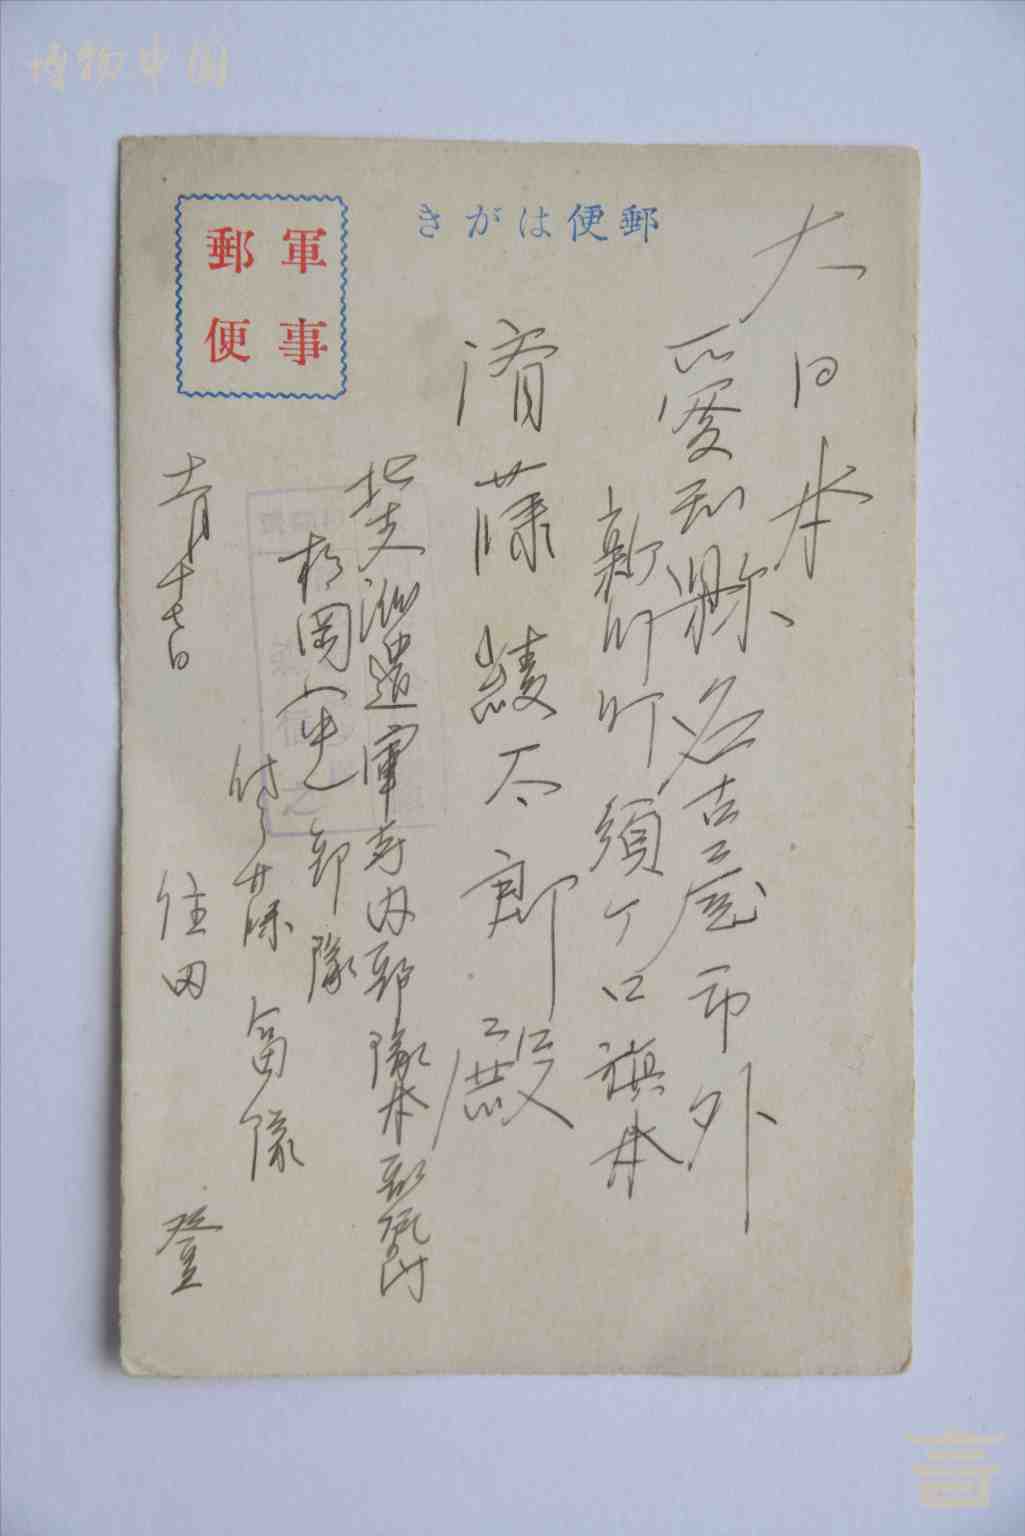 博物中国
郵便はがき
軍事
郵便
大日本
愛知縣名古屋市外
新川町須ヶ口旗本
齋藤綾太郎殿
北支派遣軍寺内部隊本部気付
岡部隊
部隊
十一月十七日
住田 登